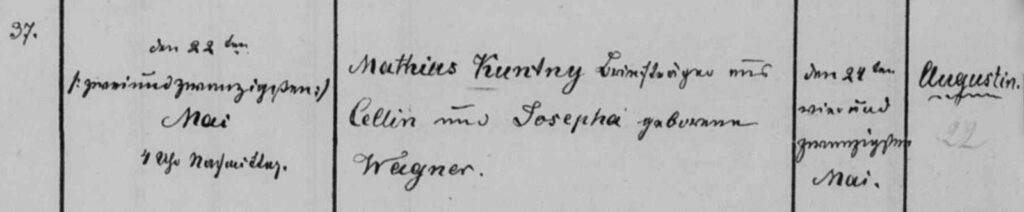 37.
den 22 ten
/: zweiundzwanzigsten :/
Mai
4 Uhr Nachmittag.
Mathias Kuntny Briefträger aus
Cellin und Josepha geborene
Wagner.
den 24 ten
vierund
zwanzigsten
Mai.
Augustin.
22